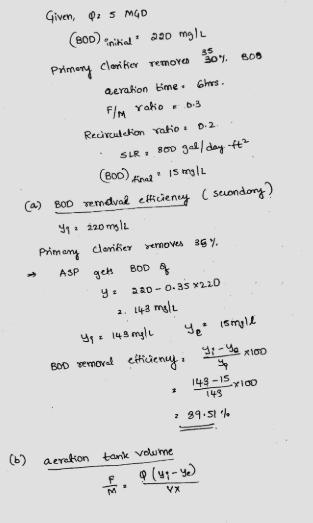 Given, Q = 5 MGD
(BOD) initial = 220 mg/L
Primary Clarifier removes 35 30%. BOD
aeration time = 6hrs.
F/M ratio = 0.3
Recirculation ratio = 0.2
SLR = 800 gal/day-ft²
(BOD) final = 15 mg/L
(a) BOD remdval efficiency (secondary)
y₁ = 220 mg/L
Primary Clarifier removes 35%.
⇒ ASP gets BOD of
y = 220 - 0.35 x220
= 143 mg/L
yᵢ = 143 mg/L yₑ = 15mg/L
BOD removal efficiency = yᵢ-yₑ/yᵢ x100
= 143-15/143 x100
= 89.51 %
(b) aeration tank volume
F/M = Q (yᵢ-yₑ)/VX